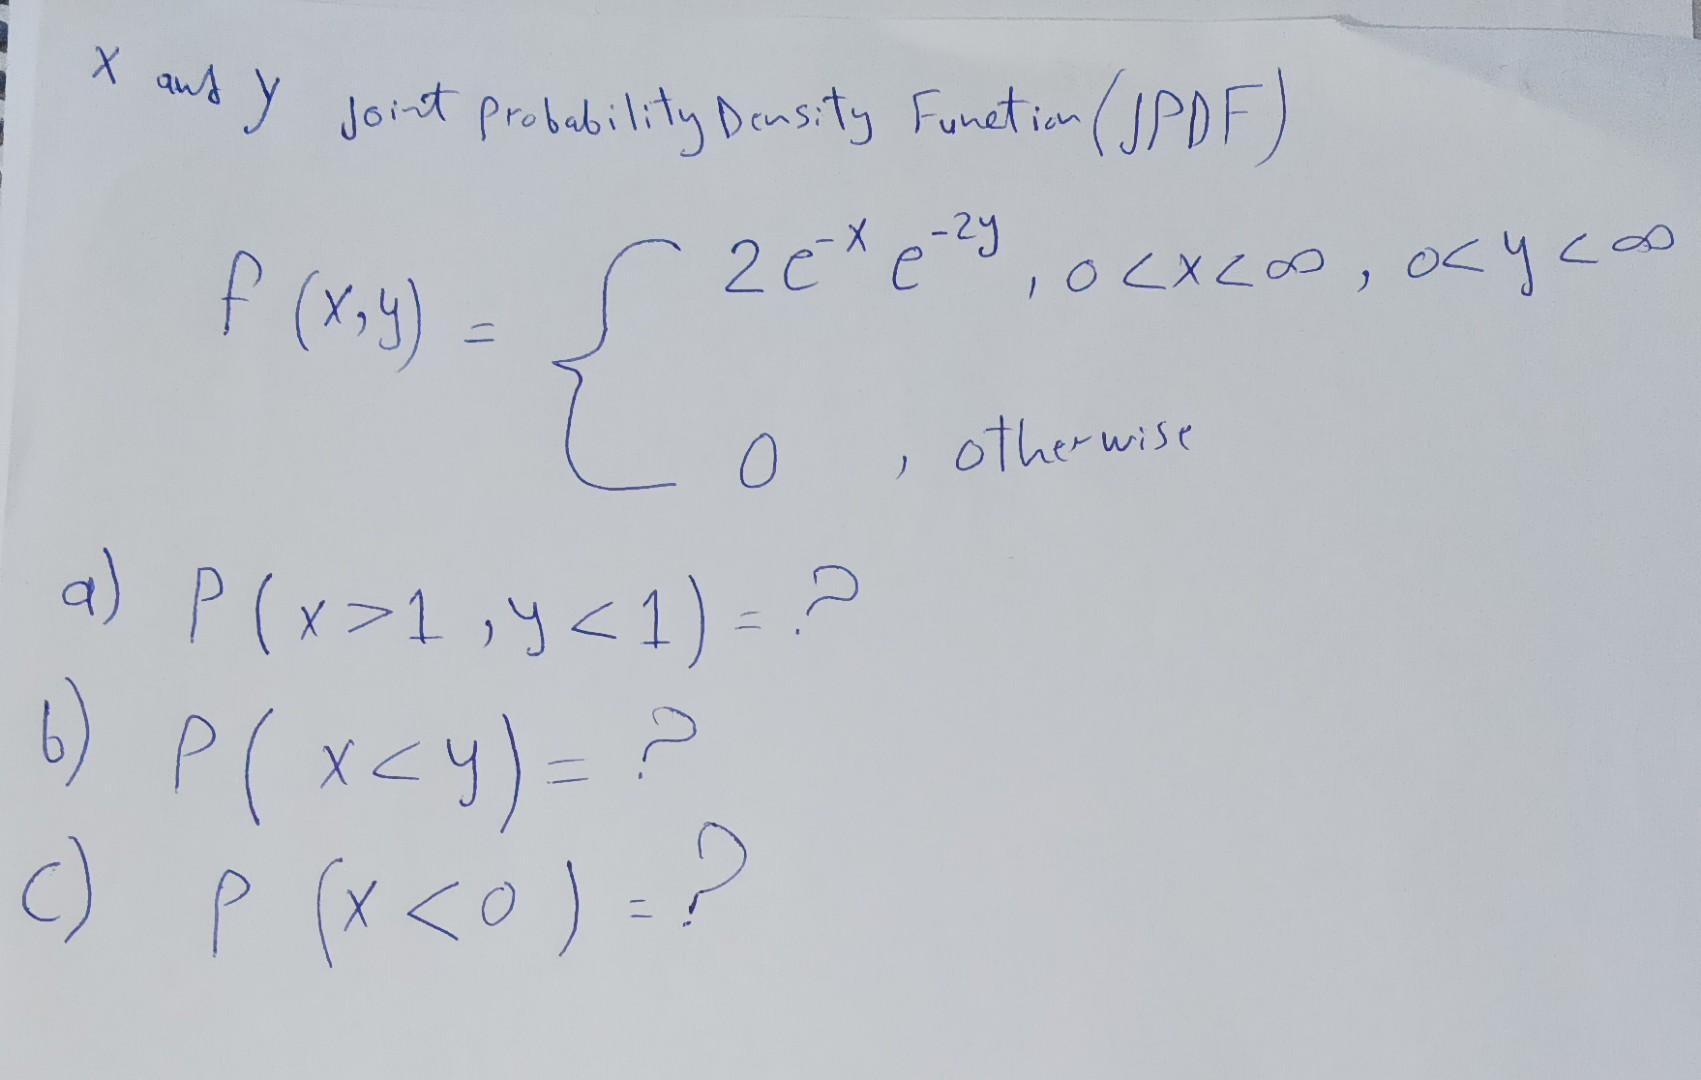 X and y Joint Probability Density Function (JPDF)
f (x,y) = { 2e^-x e^-2y , 0<x<∞ , 0<y<∞
0 , otherwise
a) P(x>1 , y<1) = ?
b) P( x<y) = ?
c) P (x<0) = ?